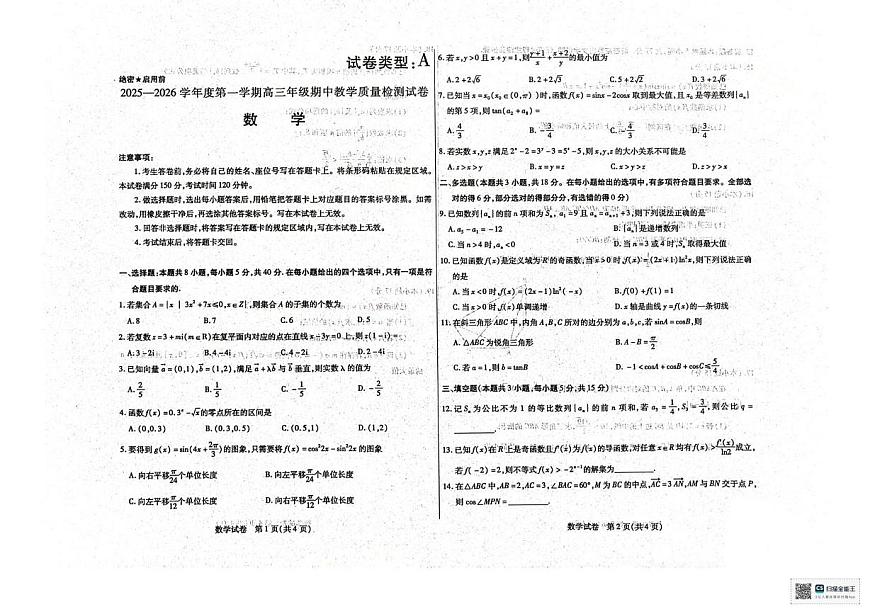 试卷类型:A
绝密★启用前
2025—2026学年度第一学期高三年级期中教学质量检测试卷
数 学
注意事项:
1.考生答卷前,务必将自己的姓名、座位号写在答题卡上。将条形码粘贴在规定区域。
本试卷满分150分,考试时间120分钟。
2.做选择题时,选出每小题答案后,用铅笔把答题卡上对应题目的答案标号涂黑。如需
改动,用橡皮擦干净后,再选涂其他答案标号。写在本试卷上无效。
3.回答非选择题时,将答案写在答题卡的规定区域内,写在本试卷上无效。
4.考试结束后,将答题卡交回。
一、选择题:本题共8小题,每小题5分,共40分.在每小题给出的四个选项中,只有一项是符
合题目要求的.
1.若集合A={x|3x²+7x≤0,x∈Z},则集合A的子集的个数为
A.8 B.7 C.6 D.5
2.若复数z=3+mi(m∈R)在复平面内对应的点在直线x-3y=0上,则z(1-i)=
A.3-2i B.4-4i C.4-2i D.2-4i
3.已知向量a=(0,1),b=(1,2),满足a+λb与b垂直,则实数λ的值为
A.2/5 B.1/5 C.-1/5 D.-2/5
4.函数f(x)=0.3ˣ-√x的零点所在的区间是
A.(0,0.3) B.(0.3,0.5) C.(0.5,1) D.(1,2)
5.要得到g(x)=sin(4x+2π/3)的图象,只需要将f(x)=cos²2x-sin²2x的图象
A.向右平移π/24个单位长度 B.向左平移π/24个单位长度
C.向左平移π/12个单位长度 D.向右平移π/12个单位长度
数学试卷 第1页(共4页)
6.若x,y>0且x+y=1,则(y+1)/x+(x+2)/y的最小值为
A.2+2√6 B.2+2√3 C.5+2√2 D.3+2√6
7.已知当x=x₀(x₀∈(0,π))时,函数f(x)=sinx-2cosx取到最大值,且x₀是等差数列{aₙ}
的第5项,则tan(a₂+a₈)=
A.4/3 B.-3/4 C.-4/3 D.3/4
8.若实数x,y,z满足2ˣ-2=3ʸ-3=5ᶻ-5,则x,y,z的大小关系不可能是
A.z>x>y B.x=y=z C.x>y>z D.z>y>x
二、多选题(本题共3小题,共18分。在每小题给出的选项中,有多项符合题目要求。全部选
对的得6分,部分选对的得部分分,有选错的得0分)
9.已知数列{aₙ}的前n项和为Sₙ,a₁=9且aₙ=aₙ₊₁+3,则下列说法正确的是
A.a₅-a₁=-12 B.{aₙ}是递增数列
C.当n>4时,aₙ<0 D.当n=3或4时,Sₙ取得最大值
10.已知函数f(x)是定义域为R的奇函数,当x>0时,f(x)=(2x+1)ln²x,则下列说法正确
的是
A.当x<0时,f(x)=(2x-1)ln²(-x) B.f(0)+f(1)=1
C.当x>0时,f(x)单调递增 D.x轴是曲线y=f(x)的一条切线
11.在斜三角形ABC中,内角A,B,C所对的边分别为a,b,c,若sinA=cosB,则
A.△ABC为锐角三角形 B.A-B=π/2
C.若a=1,则b=tanB D.-1<cosA+cosB+cosC≤5/4
三、填空题(本题共3小题,每小题5分,共15分)
12.记Sₙ为公比不为1的等比数列{aₙ}的前n项和,若a₃=1/4,S₃=3/4,则公比q=
________.
13.已知f(x)在R上是奇函数且f'(x)为f(x)的导函数,对任意x∈R均有f(x)>f'(x)/ln2成立,
若f(-2)=2,则不等式f(x)>-2ˣ⁻¹的解集为________.
14.在△ABC中,AB=2,AC=3,∠BAC=60°,M为BC的中点,AC=3AN,AM与BN交于点P,
则cos∠MPN=________.
数学试卷 第2页(共4页)
扫描全能王